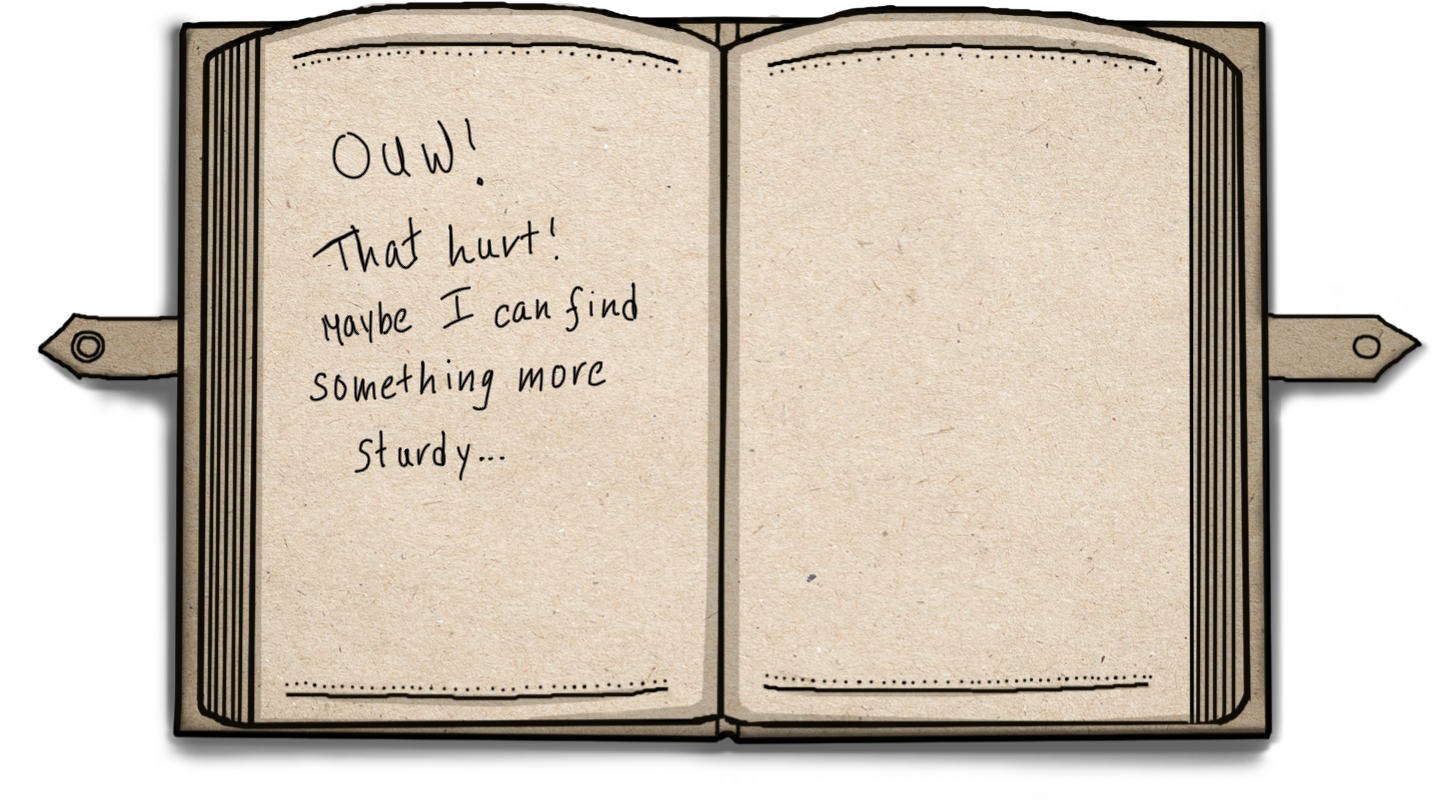 Ouw!
That hurt!
Maybe I can find
something more
sturdy...